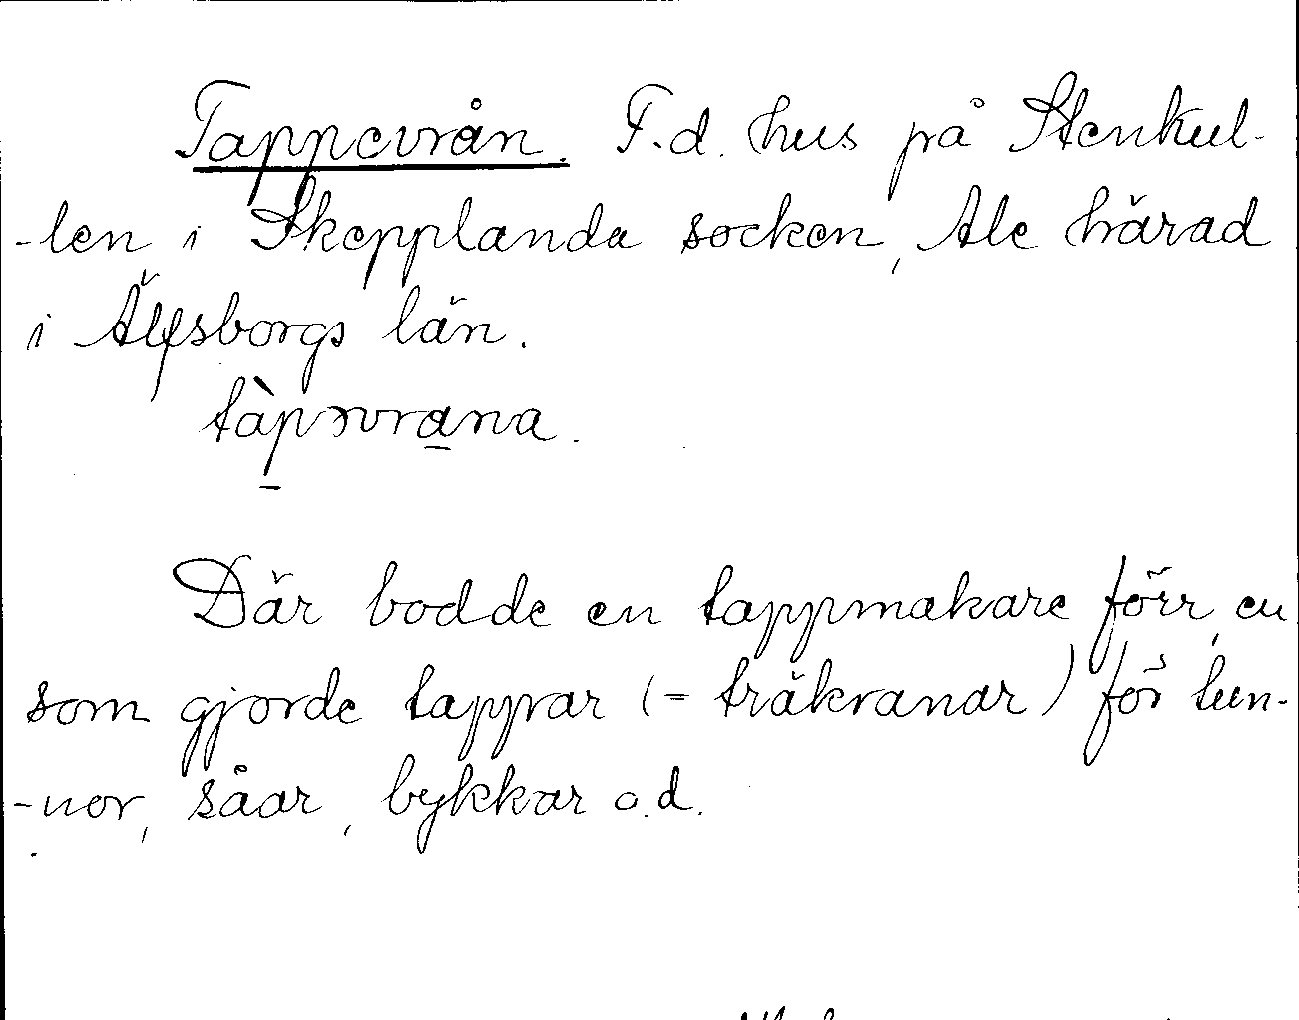 Tappevrån. F.d. hus på Stenkul-
-len i Skepplanda socken, Ale härad
i Älfsborgs län.
Där bodde en tappmakare förr, en
som gjorde tappar (= träkranar) för tun-
-nor, såar, bykkar o.d.